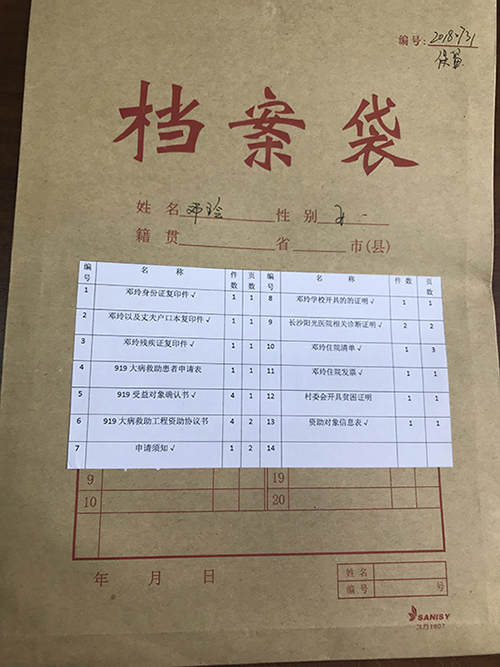 编号: 2018.7.31
档案袋
姓名 邓玲 性别
籍贯 省 市(县)
编号 名 称 件数 页数 编号 名 称 件数 页数
1 邓玲身份证复印件√ 1 1 8 邓玲学校开具的的证明√ 1 1
2 邓玲以及丈夫户口本复印件√ 1 1 9 长沙阳光医院相关诊断证明√ 2 2
3 邓玲残疾证复印件√ 1 1 10 邓玲住院清单√ 1 3
4 919大病救助患者申请表 1 1 11 邓玲住院发票√ 1 1
5 919受益对象确认书√ 4 1 12 村委会开具贫困证明 1 1
6 919大病救助工程资助协议书 4 2 13 资助对象信息表√ 1 1
7 申请须知√ 1 2 14
9 19
10 20
年 月 日
姓名
编号 号
SANISY